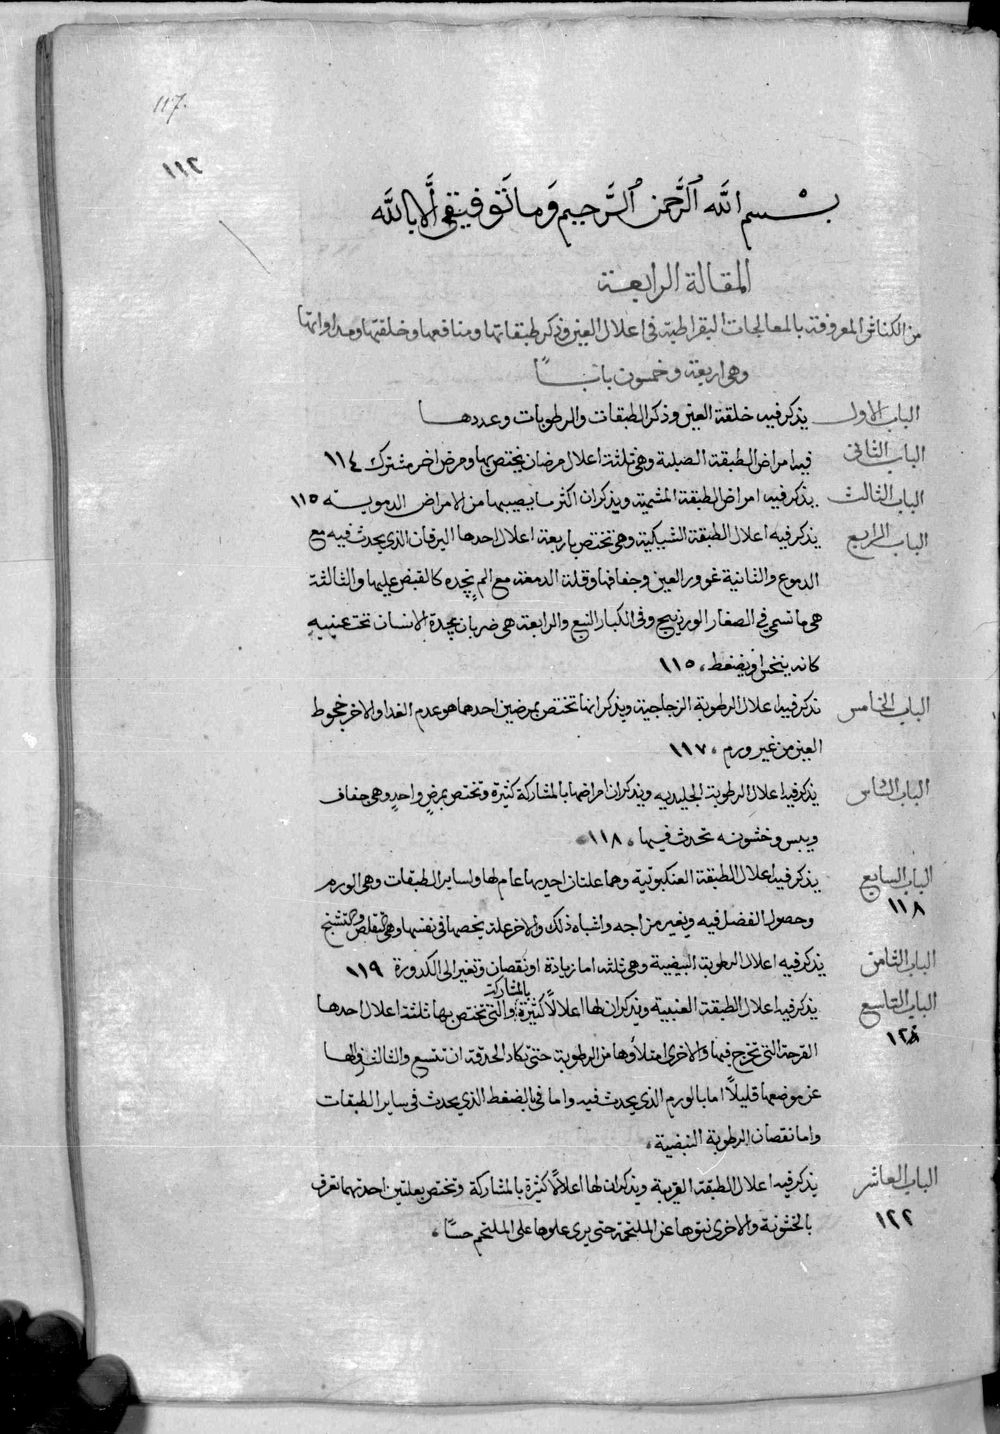 117.
١١٢
بسم الله الرَّحمن الرَّحيم وَما تَوفيقي إلّا بالله
المقالة الرابعة
من الكناش المعروفة بالمعالجات البقراطية في اعلال العين وذكر طبقاتها ومنافعها وخلقتها ومداواتها
وهي اربعة وخمسون بابًا
الباب الاول يذكر فيه خلقة العين وذكر الطبقات والرطوبات وعددها
الباب الثاني فيه امراض الطبقة الصلبة وهي ثلثة اعلال مرضان يختص بها ومرض اخر مشترك ١١٤
الباب الثالث يذكر فيه امراض الطبقة المشيمية ويذكر ان اكثر ما يصيبها من الامراض الدموية ١١٥
الباب الرابع يذكر فيه اعلال الطبقة الشبكية وهي تختص باربعة اعلال احدها اليرقان الذي يحدث فيه مع
الدموع والثانية غوور العين وجفافها وقلة الدمعة مع الم يجده كالقبض عليها والثالثة
هي ما تسمى في الصغار الوردينج وفي الكبار النبع والرابعة هي ضربان يجدة الانسان تحت عينيه
كانه ينخس او يضغط، ١١٥
الباب الخامس تذكر فيه اعلال الرطوبة الزجاجية ويذكر انها تختص بمرضين احدهما هو عدم الغدا والاخر جحوظ
العين من غير ورم، ١١٧
الباب السادس يذكر فيه اعلال الرطوبة الجليدية ويذكر ان امراضها بالمشاركة كثيرة وتختص بمرضٍ واحدٍ وهي جفاف
ويبس وخشونه تحدث فيها، ١١٨
الباب السابع يذكر فيه اعلال الطبقة العنكبوتية وهما علتان احديها عام لها ولساير الطبقات وهي الورم
١١٨
وحصول الفضل فيه وتغير مزاجه واشباه ذلك والاخر علة يخصها في نفسها وهي التقلص والتشنج
الباب الثامن يذكر فيه اعلال الرطوبة البيضية وهي ثلثه اما زيادة او نقصان وتغير الى الكدورة ١١٩
الباب التاسع يذكر فيه اعلال الطبقة العنبية ويذكر ان لها اعلالًا كثيرة بالمشاركة والتي تختص بها ثلثة اعلال احدها
القرحة التي تخرج فيها والاخرى امتلاؤها من الرطوبة حتى تكاد الحدقة ان تتسع والثالث زوالها
عن موضعها قليلًا اما بالورم الذي يحدث فيه واما في بالضغط الذي يحدث في ساير الطبقات
واما نقصان الرطوبة البيضية،
الباب العاشر يذكر فيه اعلال الطبقة القرنية ويذكر ان لها اعلالًا كثيرة بالمشاركة وتختص بعلتين احدتهما تعرف
١٢٢
بالخشونة والاخرى نتوها عن الملتحمة حتى يرى علوها على الملتحم حسًّا،